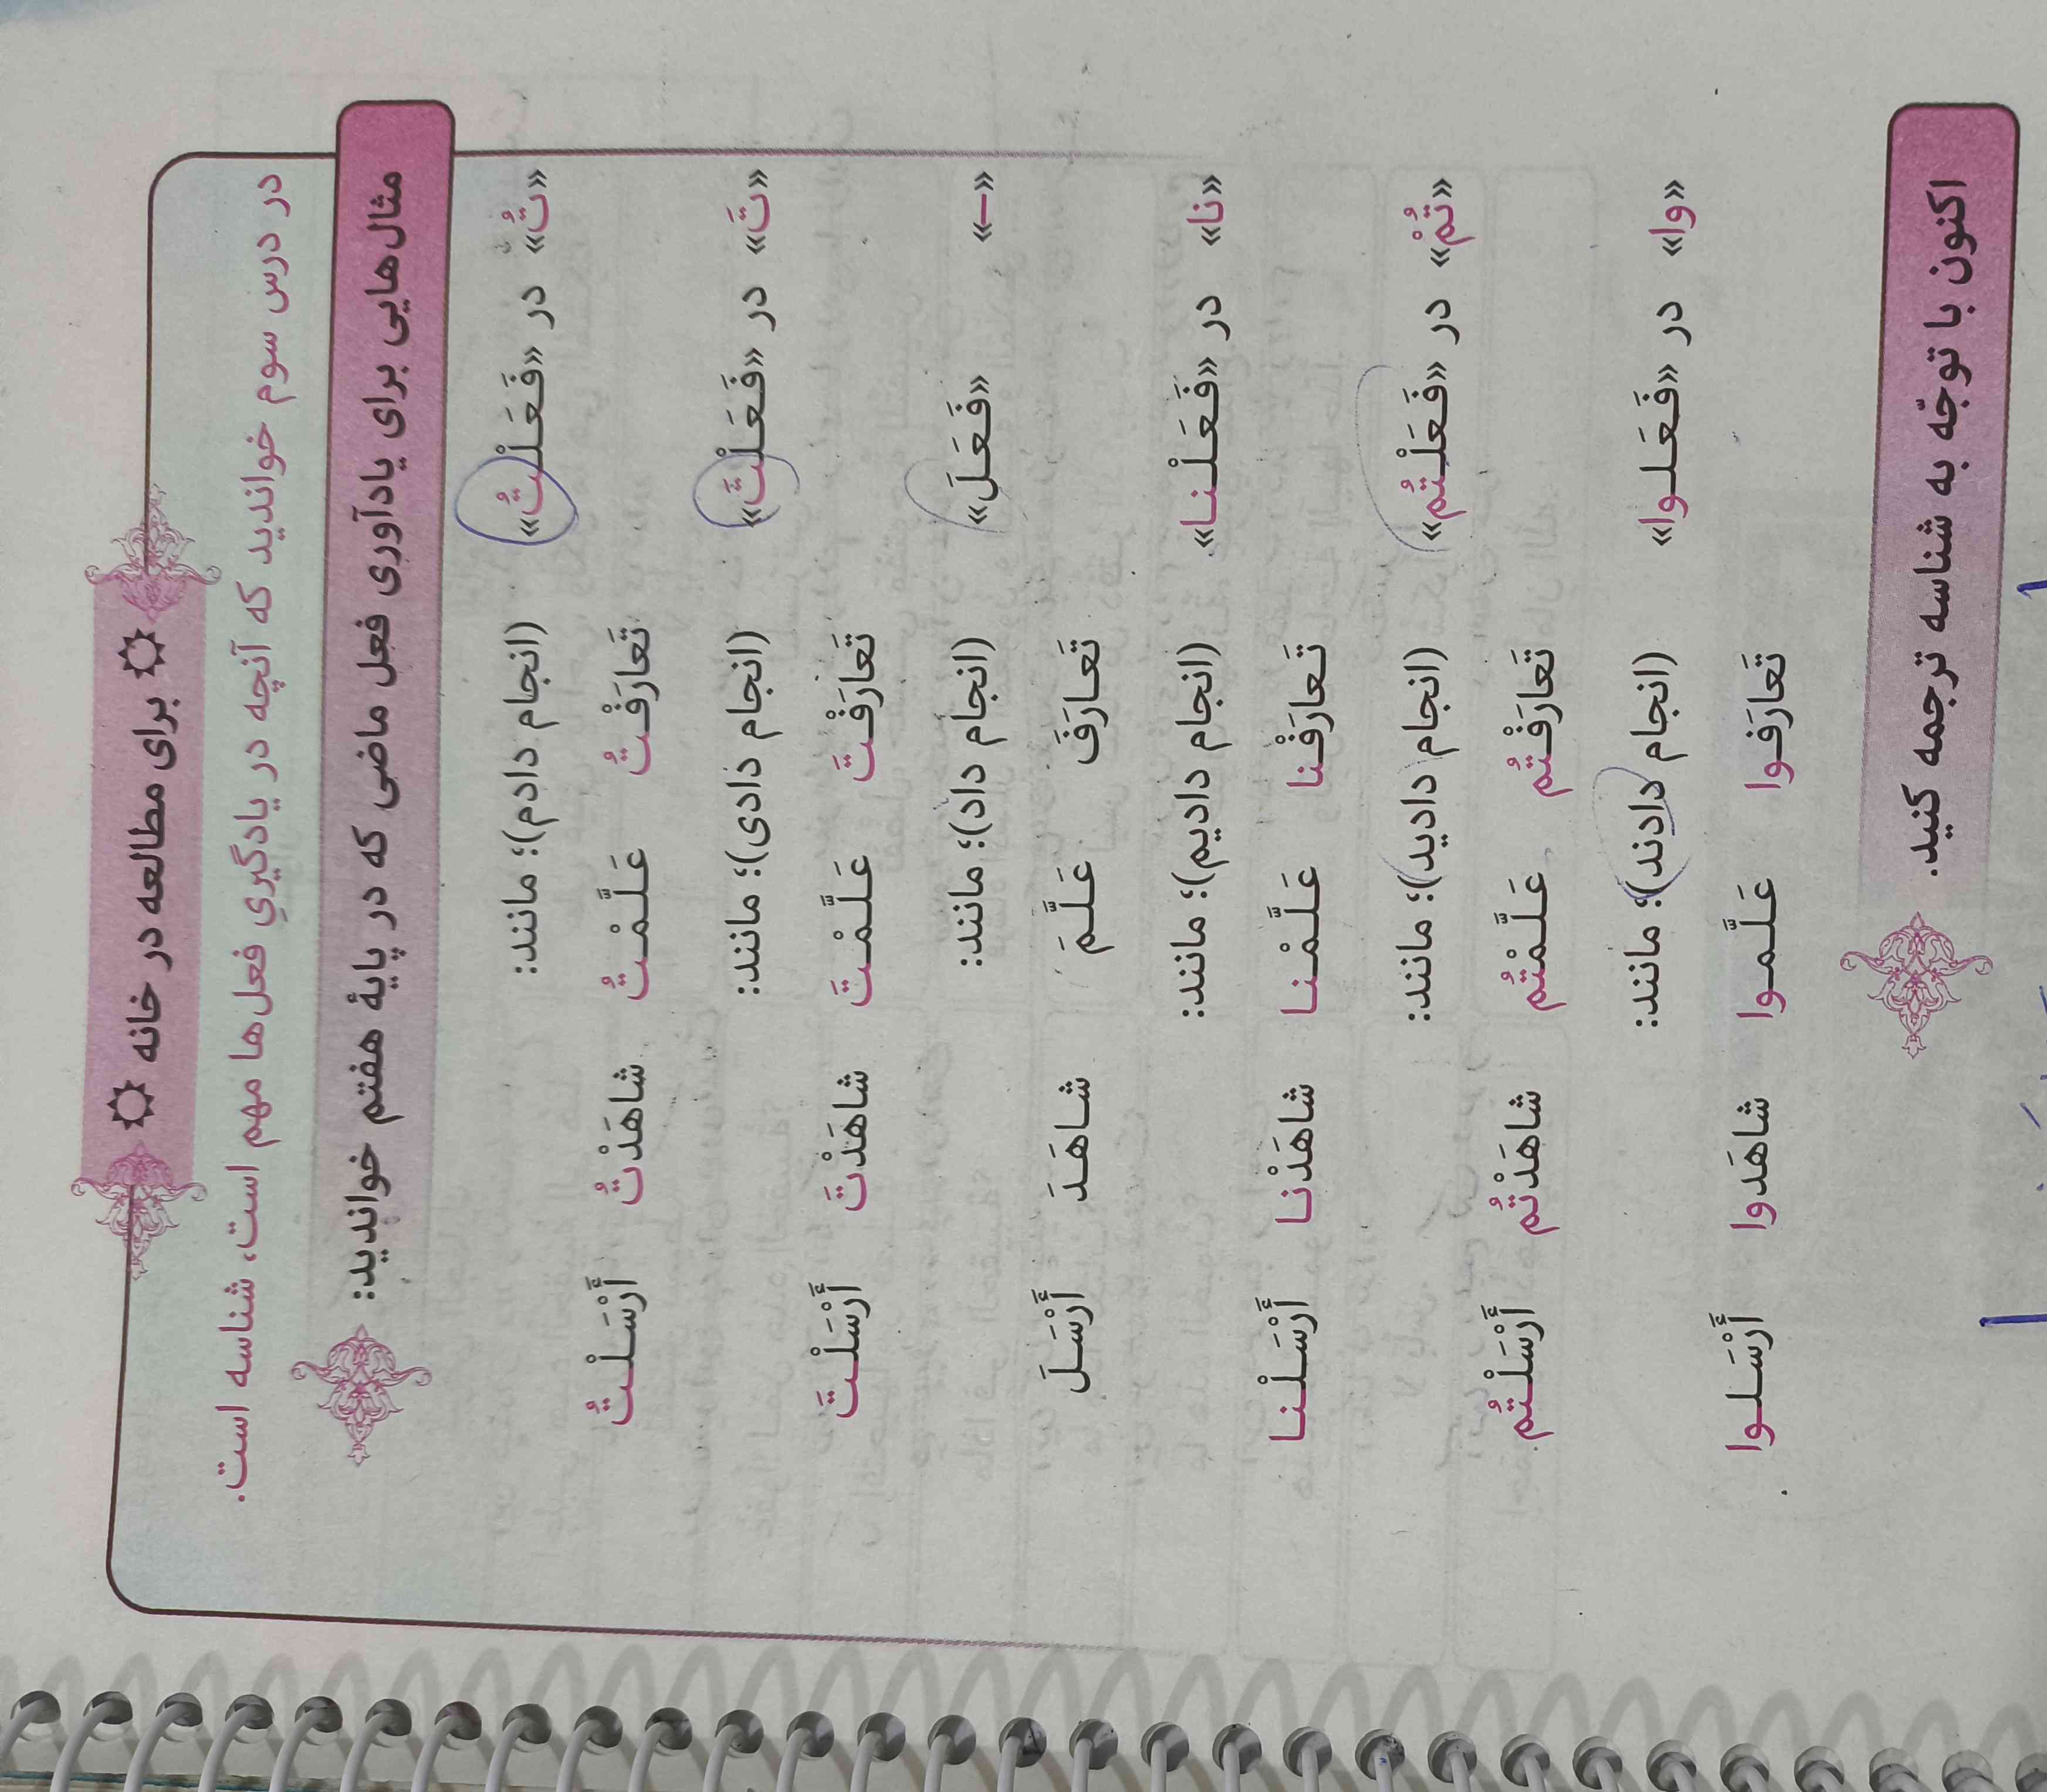 برای مطالعه در خانه
در درس سوم خواندید که آنچه در یادگیریِ فعل‌ها مهم است، شناسه است.
مثال‌هایی برای یادآوری فعل ماضی که در پایهٔ هفتم خواندید:
«تُ» در «فَعَلْتُ» (انجام دادم)؛ مانند:
تَعارَفْتُ عَلَّمْتُ شاهَدْتُ أَرْسَلْتُ
«تَ» در «فَعَلْتَ» (انجام دادی)؛ مانند:
تَعارَفْتَ عَلَّمْتَ شاهَدْتَ أَرْسَلْتَ
«ـ» «فَعَلَ» (انجام داد)؛ مانند:
تَعارَفَ عَلَّمَ شاهَدَ أَرْسَلَ
«نا» در «فَعَلْنا» (انجام دادیم)؛ مانند:
تَعارَفْنا عَلَّمْنا شاهَدْنا أَرْسَلْنا
«تُمْ» در «فَعَلْتُم» (انجام دادید)؛ مانند:
تَعارَفْتُم عَلَّمْتُم شاهَدْتُم أَرْسَلْتُم
«وا» در «فَعَلوا» (انجام دادند)؛ مانند:
تَعارَفوا عَلَّموا شاهَدوا أَرْسَلوا
اکنون با توجّه به شناسه ترجمه کنید.